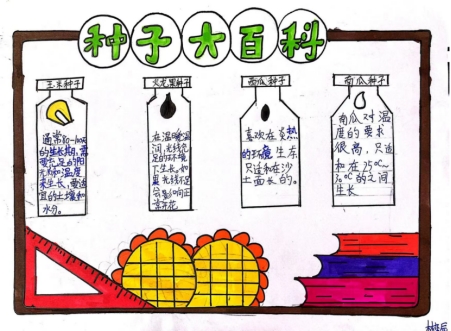 种子大百科
玉米种子
火龙果种子
西瓜种子
南瓜种子
的生长期,需
要充足的阳
光和温度
来生长,要适
宜的土壤和
水分。
在温暖湿
润,光线充
足的环境
下生长。如
果光线不足
会影响正
常开花
喜欢在炎热
的环境生存
只适和在沙
土面长的。
南瓜对温
度的要求
很高,只适
和在25℃~
30℃的之间
生长